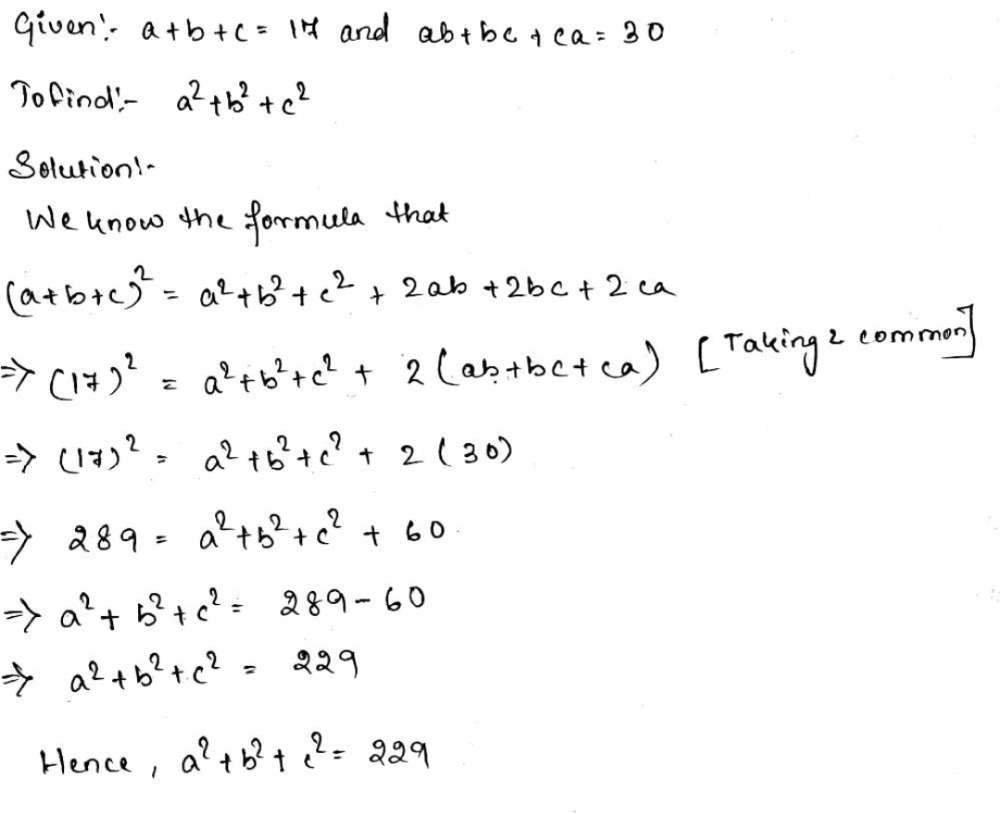 Given:- a+b+c = 17 and ab+bc+ca = 30
To find:- a²+b²+c²
Solution:-
We know the formula that
(a+b+c)² = a²+b²+c² + 2ab +2bc + 2ca
⇒ (17)² = a²+b²+c² + 2(ab+bc+ca) [Taking 2 common]
⇒ (17)² = a²+b²+c² + 2(30)
⇒ 289 = a²+b²+c² + 60
⇒ a²+b²+c² = 289-60
⇒ a²+b²+c² = 229
Hence, a²+b²+c² = 229